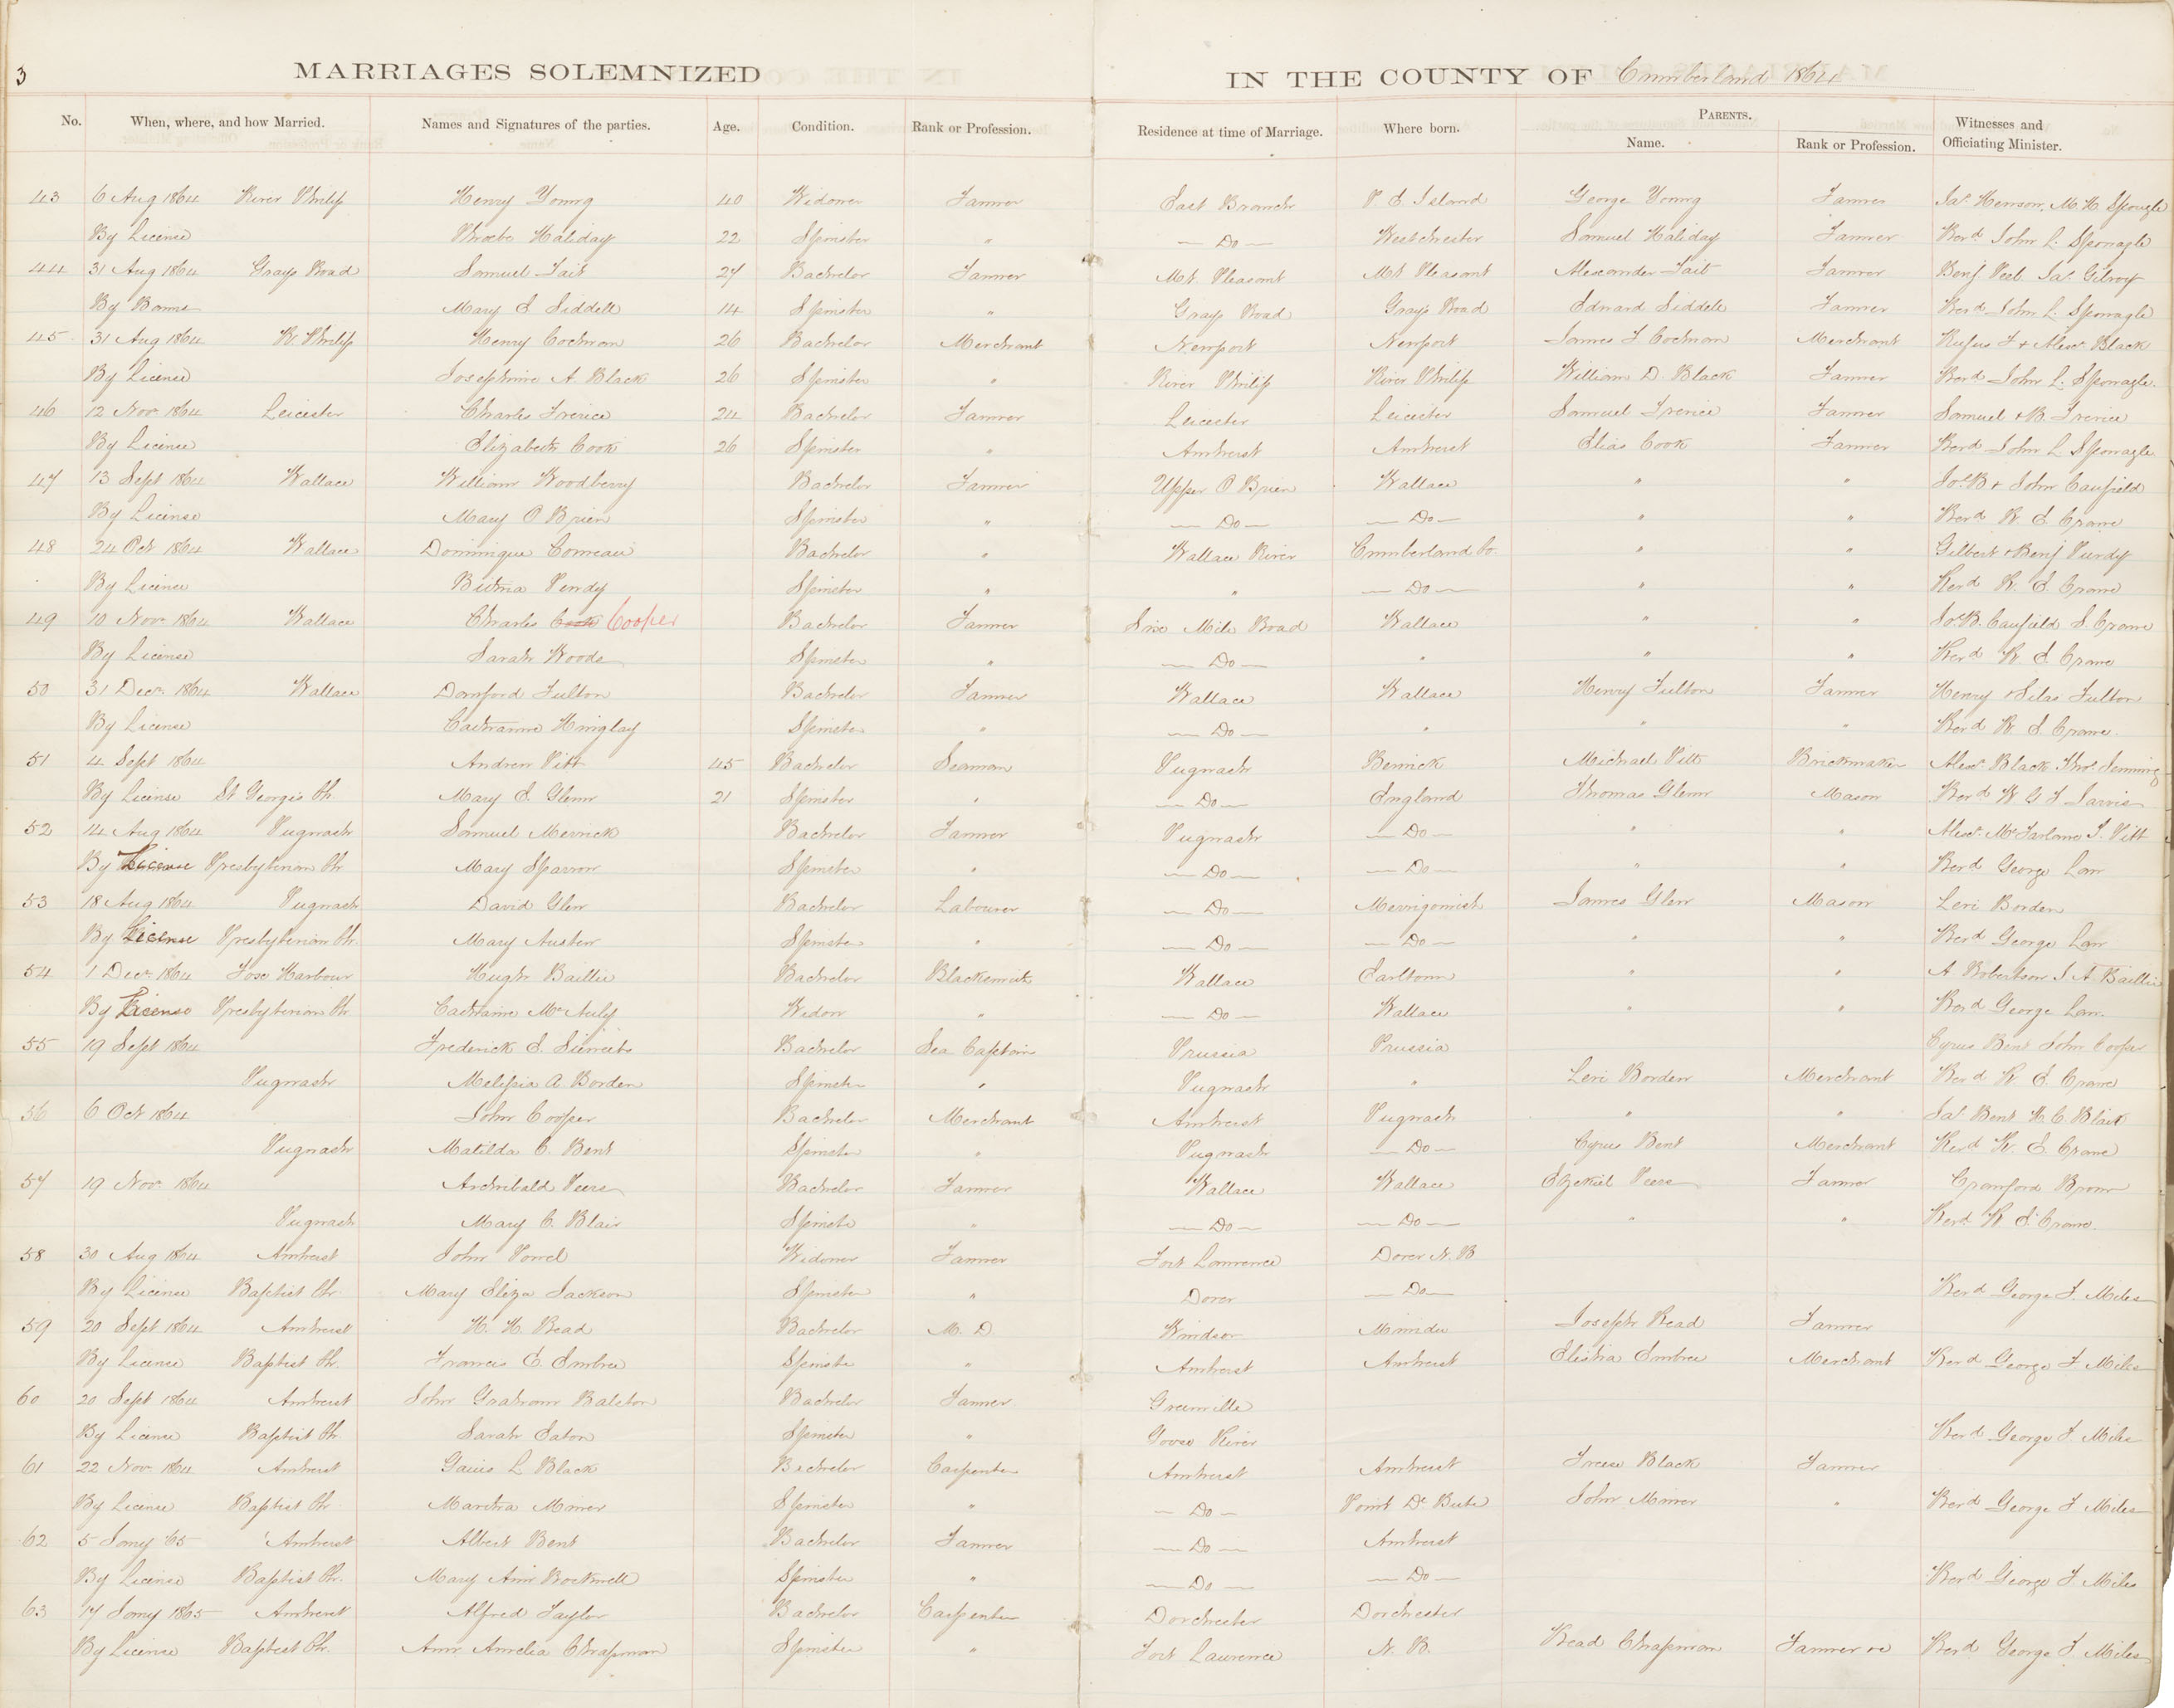 3
MARRIAGES SOLEMNIZED IN THE COUNTY OF Cumberland 1864
No. When, where, and how Married. Names and Signatures of the parties. Age. Condition. Rank or Profession. Residence at time of Marriage. Where born. PARENTS. Name. Rank or Profession. Witnesses and Officiating Minister.
43 6 Aug 1864 River Philip Henry Young 40 Widower Farmer East Branch P. E Island George Young Farmer Jas. Henson, M. H. Sponagle
By License Phoebe Haliday 22 Spinster " — Do — Westchester Samuel Haliday Farmer Revd John L. Sponagle
44 31 Aug 1864 Grays Road Samuel Tait 27 Bachelor Farmer Mt. Pleasant Mt Pleasant Alexander Tait Farmer Benj. Peel Jas. Gilroy
By Banns Mary E Siddell 14 Spinster " Grays Road Grays Road Edward Siddell Farmer Revd John L. Sponagle
45 31 Aug 1864 R. Philip Henry Cochran 26 Bachelor Merchant Newport Newport James F Cochran Merchant Rufus F + Alexr. Black
By License Josephine A. Black 26 Spinster " River Philip River Philip William D. Black Farmer Revd John L. Sponagle.
46 12 Nov 1864 Leicester Charles Trerice 24 Bachelor Farmer Leicester Leicester Samuel Trerice Farmer Samuel + B. Trerice
By License Elizabeth Cook 26 Spinster " Amherst Amherst Elias Cook Farmer Revd John L Sponagle
47 13 Sept 1864 Wallace William Woodberry Bachelor Farmer Upper O Brien Wallace " " Jos. B + John Canfield
By License Mary O Brien Spinster " — Do — — Do — " " Revd R E Crane
48 24 Oct 1864 Wallace Dominique Comeau Bachelor " Wallace River Cumberland Co. " " Gilbert + Benj Purdy
By License Purdy Spinster " " — Do — " " Revd R. E. Crane
49 10 Nov. 1864 Wallace Charles Cook Cooper Bachelor Farmer Six Mile Road Wallace " " Jos. B. Canfield S. Crane
By License Sarah Woods Spinster " — Do — " " " Revd R E. Crane
50 31 Decr. 1864 Wallace Danford Fulton Bachelor Farmer Wallace Wallace Henry Fulton Farmer Henry + Silas Fulton
By License Catharine Hinglay Spinster " — Do — " " " Revd R. E Crane.
51 4 Sept 1864 Andrew Pitt 45 Bachelor Seaman Pugwash Berwick Michael Pitt Brickmaker Alexr. Black Thos. Jenning
By License St Georges Ch. Mary E. Glenn 21 Spinster " — Do — England Thomas Glenn Mason Revd W G T Jarvis
52 14 Aug 1864 Pugwash Samuel Merrick Bachelor Farmer Pugwash — Do — " " Alexr. McFarlane J. Pitt
By License Presbyterian Ch. Mary Sparrow Spinster " — Do — — Do — " " Revd George Law
53 18 Aug 1864 Pugwash David Glen Bachelor Labourer — Do — Merrigomish James Glen Mason Levi Borden
By License Presbyterian Ch. Mary Austen Spinster " — Do — — Do — " " Revd George Law
54 1 Decr. 1864 Fox Harbour Hugh Baillie Bachelor Blacksmith Wallace Earltown " " A Robertson J A Baillie
By License Presbyterian Ch Catharine McAuly Widow " — Do — Wallace " " Revd George Law.
55 19 Sept 1864 Frederick E. Bachelor Sea Captain Prussia Prussia Cyrus Bent John Cooper
Pugwash Melissia A. Borden Spinster " Pugwash " Levi Borden Merchant Revd R E. Crane
56 6 Oct 1864 John Cooper Bachelor Merchant Amherst Pugwash " " Jas. Bent H. C Black
Pugwash Matilda C. Bent Spinster " Pugwash — Do — Cyrus Bent Merchant Revd R. E. Crane
57 19 Nov. 1864 Archibald Peers Bachelor Farmer Wallace Wallace Ezekiel Peers Farmer Crawford Brown
Pugwash Mary C. Blair Spinster " — Do — — Do — " " Revd. R E Crane.
58 30 Aug 1864 Amherst John Powel Widower Farmer Fort Lawrence Dover N. B
By License Baptist Ch. Mary Eliza Jackson Spinster " Dover — Do — Revd George F. Miles
59 20 Sept 1864 Amherst H. H. Read Bachelor M. D Windsor Minudie Joseph Read Farmer
By License Baptist Ch. Francis E. Embree Spinster " Amherst Amherst Elisha Embree Merchant Revd George F Miles
60 20 Sept 1864 Amherst John Graham Ralston Bachelor Farmer Greenville
By License Baptist Ch. Sarah Eaton Spinster " Goose River Revd George F. Miles
61 22 Nov 1864 Amherst Gaius L Black Bachelor Carpenter Amherst Amherst Freese Black Farmer
By License Baptist Ch. Martha Miner Spinster " — Do — Point De Bute John Miner " Revd George F Miles
62 5 Jany '65 Amherst Albert Bent Bachelor Farmer — Do — Amherst
By License Baptist Ch. Mary Ann Rockwell Spinster " — Do — — Do — Revd George F Miles
63 17 Jany 1865 Amherst Alfred Taylor Bachelor Carpenter Dorchester Dorchester
By License Baptist Ch. Ann Amelia Chapman Spinster " Fort Lawrence N. B. Read Chapman Farmer Revd George F. Miles